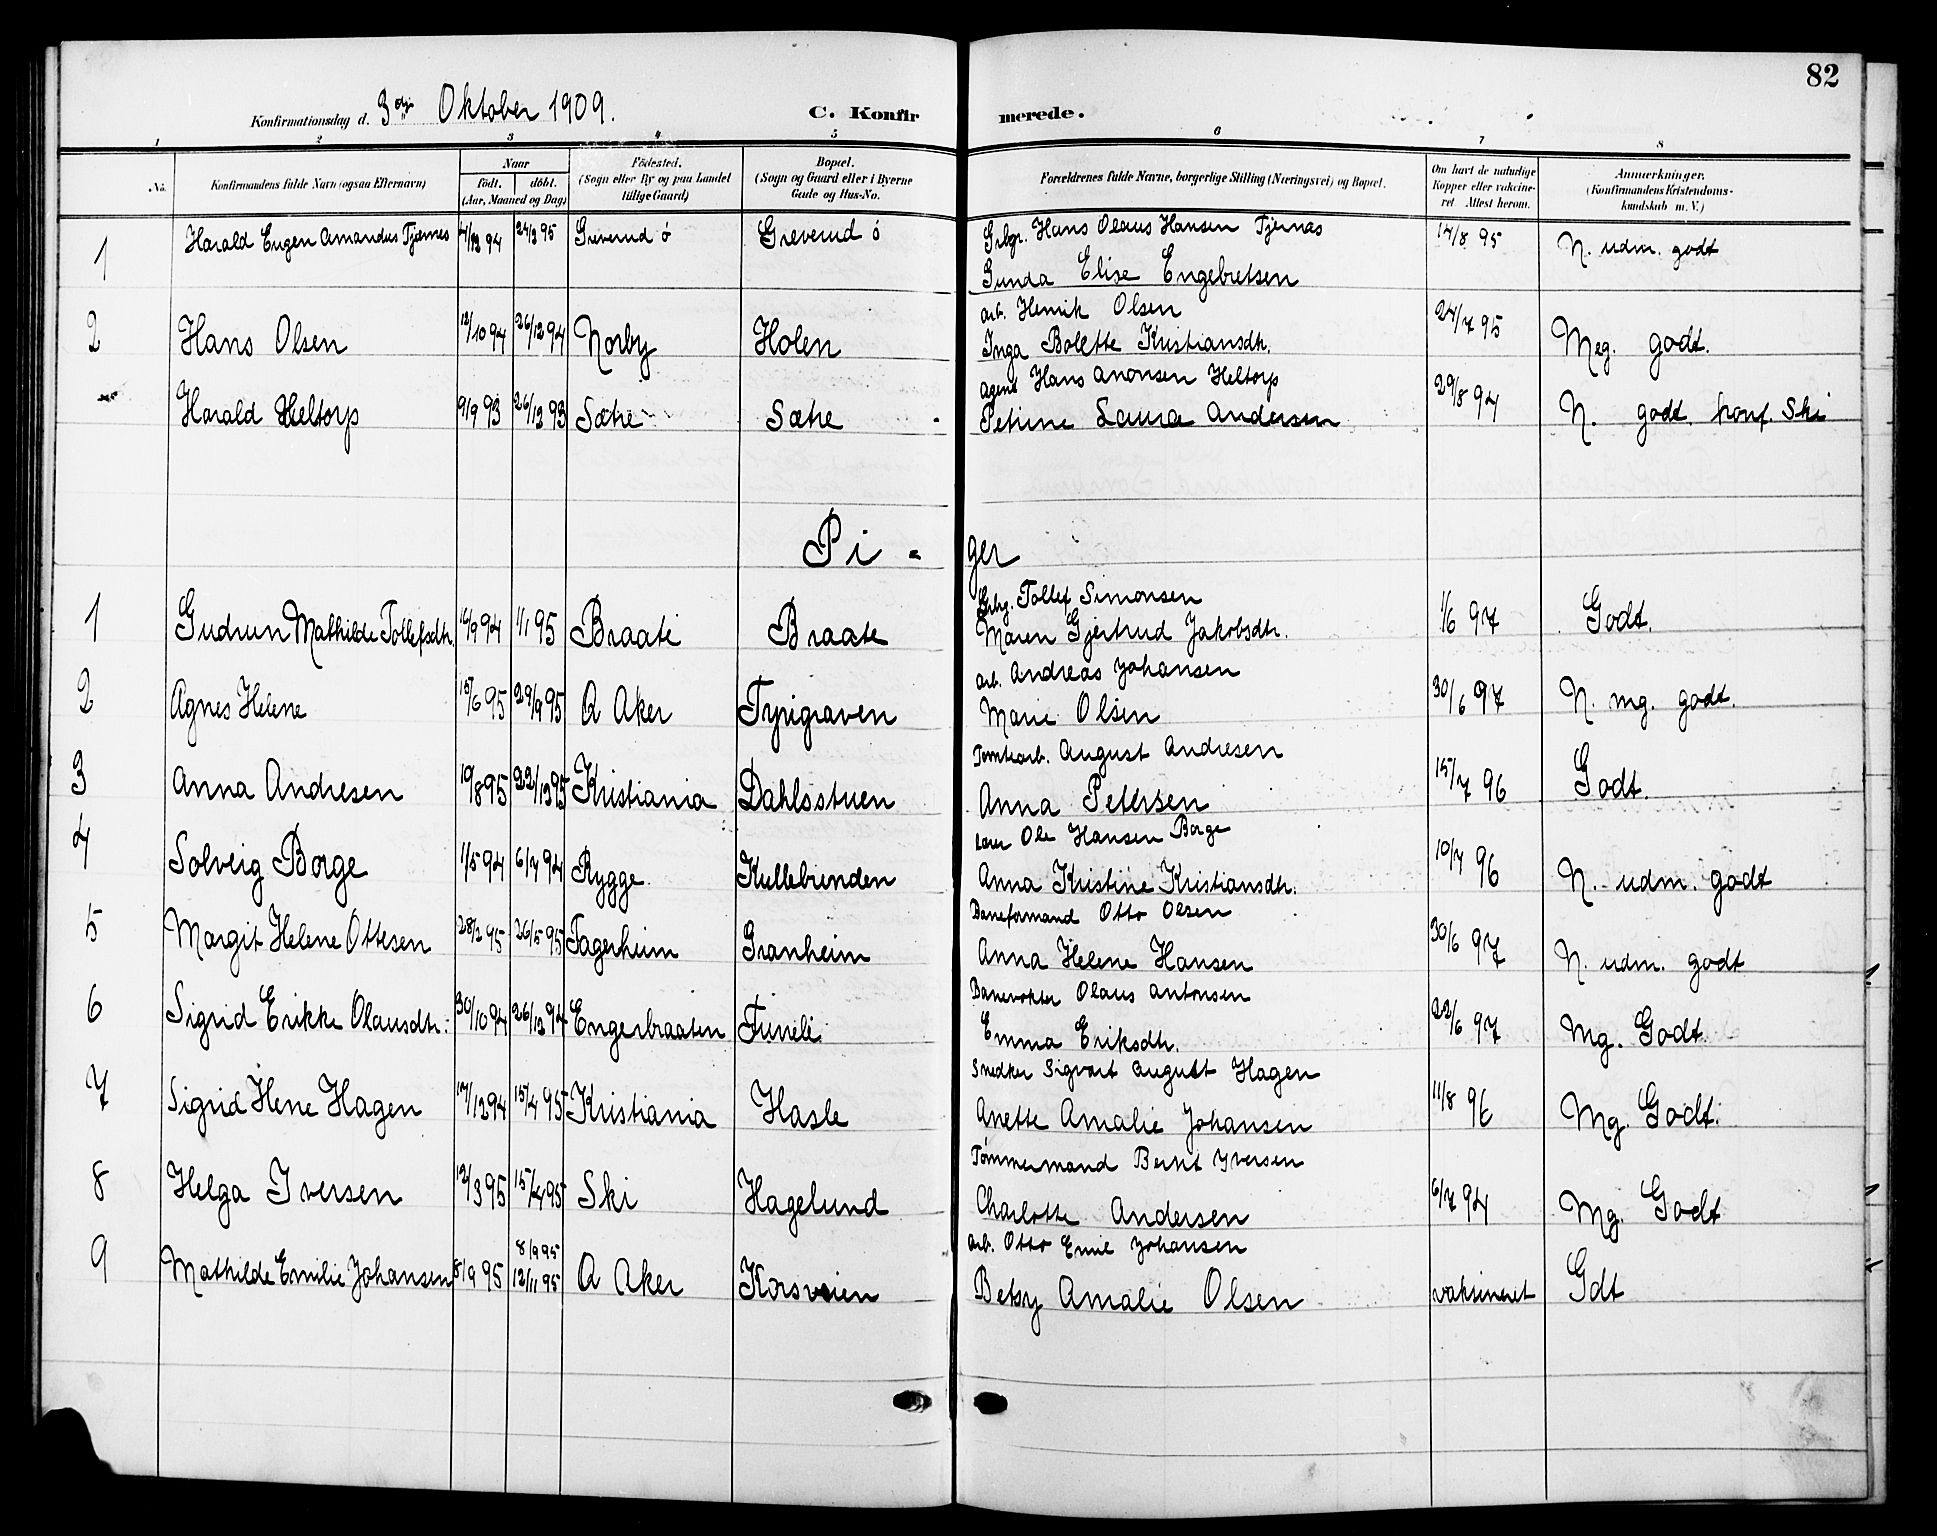 82
Konfirmationsdag d. 3die Oktober 1909.
C. Konfirmerede.
1 2 3 4 5 6 7 8
No. Konfirmandens fulde Navn (ogsaa Efternavn) Naar født. døbt. (Aar, Maaned og Dag) Fødested. (Sogn eller By og paa Landet tillige Gaard) Bopæl. (Sogn og Gaard eller i Byerne Gade og Hus-No. Forældrenes fulde Navne, borgerlige Stilling (Næringsvei) og Bopæl. Om havt de naturlige Kopper eller vakcineret Attest herom. Anmærkninger. (Konfirmandens Kristendomskundskab m.V.)
1 Harald Eugen Amandus Tjærnes 94 24/3 95 Greverud ø Greverud ø Grbgr. Hans Olaus Hansen Tjernæs 14/8 95 N. udm. godt
Gunda Elise Engebretsen
2 Hans Olsen 12/10 94 26/12 94 Norby Holen arb. Henrik Olsen 24/7 95 Meg. godt.
Inga Bolette Kristiansdtr.
Harald Heltorp 9/9 93 26/12 93 Sætre Sætre Agent Hans Anonsen Heltorp 29/8 94 N. godt. konf. Ski
Petrine Laura Andersen
Pi - ger
1 Gudrun Mathilde Tollefsdtr. 16/9 94 1/1 95 Braate Braate Grbg. Tollef Simonsen 1/6 97 Godt.
Maren Gjertrud Jakobsdtr.
2 Agnes Helene 15/6 95 29/9 95 Ø Aker Tyrigraven arb. Andreas Johansen 30/6 97 N. mg. godt.
Marie Olsen
3 Anna Andresen 10/8 95 22/12 95 Kristiania Dahlsstuen Tomtearb. August Andresen 15/7 96 Godt.
Anna Petersen
4 Solveig Borge 1/5 94 6/7 94 Rygge Kullebunden Lærer Ole Hansen Borge 10/7 96 N. udm. godt
Anna Kristine Kristiansdtr.
5 Margit Helene Ottesen 28/2 95 26/5 95 Fagerheim Granheim Baneformand Otto Olsen 30/6 97 N. udm. godt
Anna Helene Hansen
6 Sigrid Erikke Olausdtr. 30/10 94 26/12 94 Engerbraaten Furuli Banevokter Olaus Antonsen 22/6 97 Mg. Godt
Emma Eriksdtr.
7 Sigrid Irene Hagen 17/12 94 15/4 95 Kristiania Hasle Snedker Sigvart August Hagen 11/8 96 Mg. Godt.
Anette Amalie Johansen
8 Helga Iversen 12/3 95 15/4 95 Ski Hagelund Tømmermand Bernt Iversen 6/7 94 Mg. Godt
Charlotte Andersen
9 Mathilde Emilie Johansen 8/9 95 8/9 95 12/11 95 Ø Aker Korsveien arb. Otto Emil Johansen vaksineret Gdt
Betsy Amalie Olsen